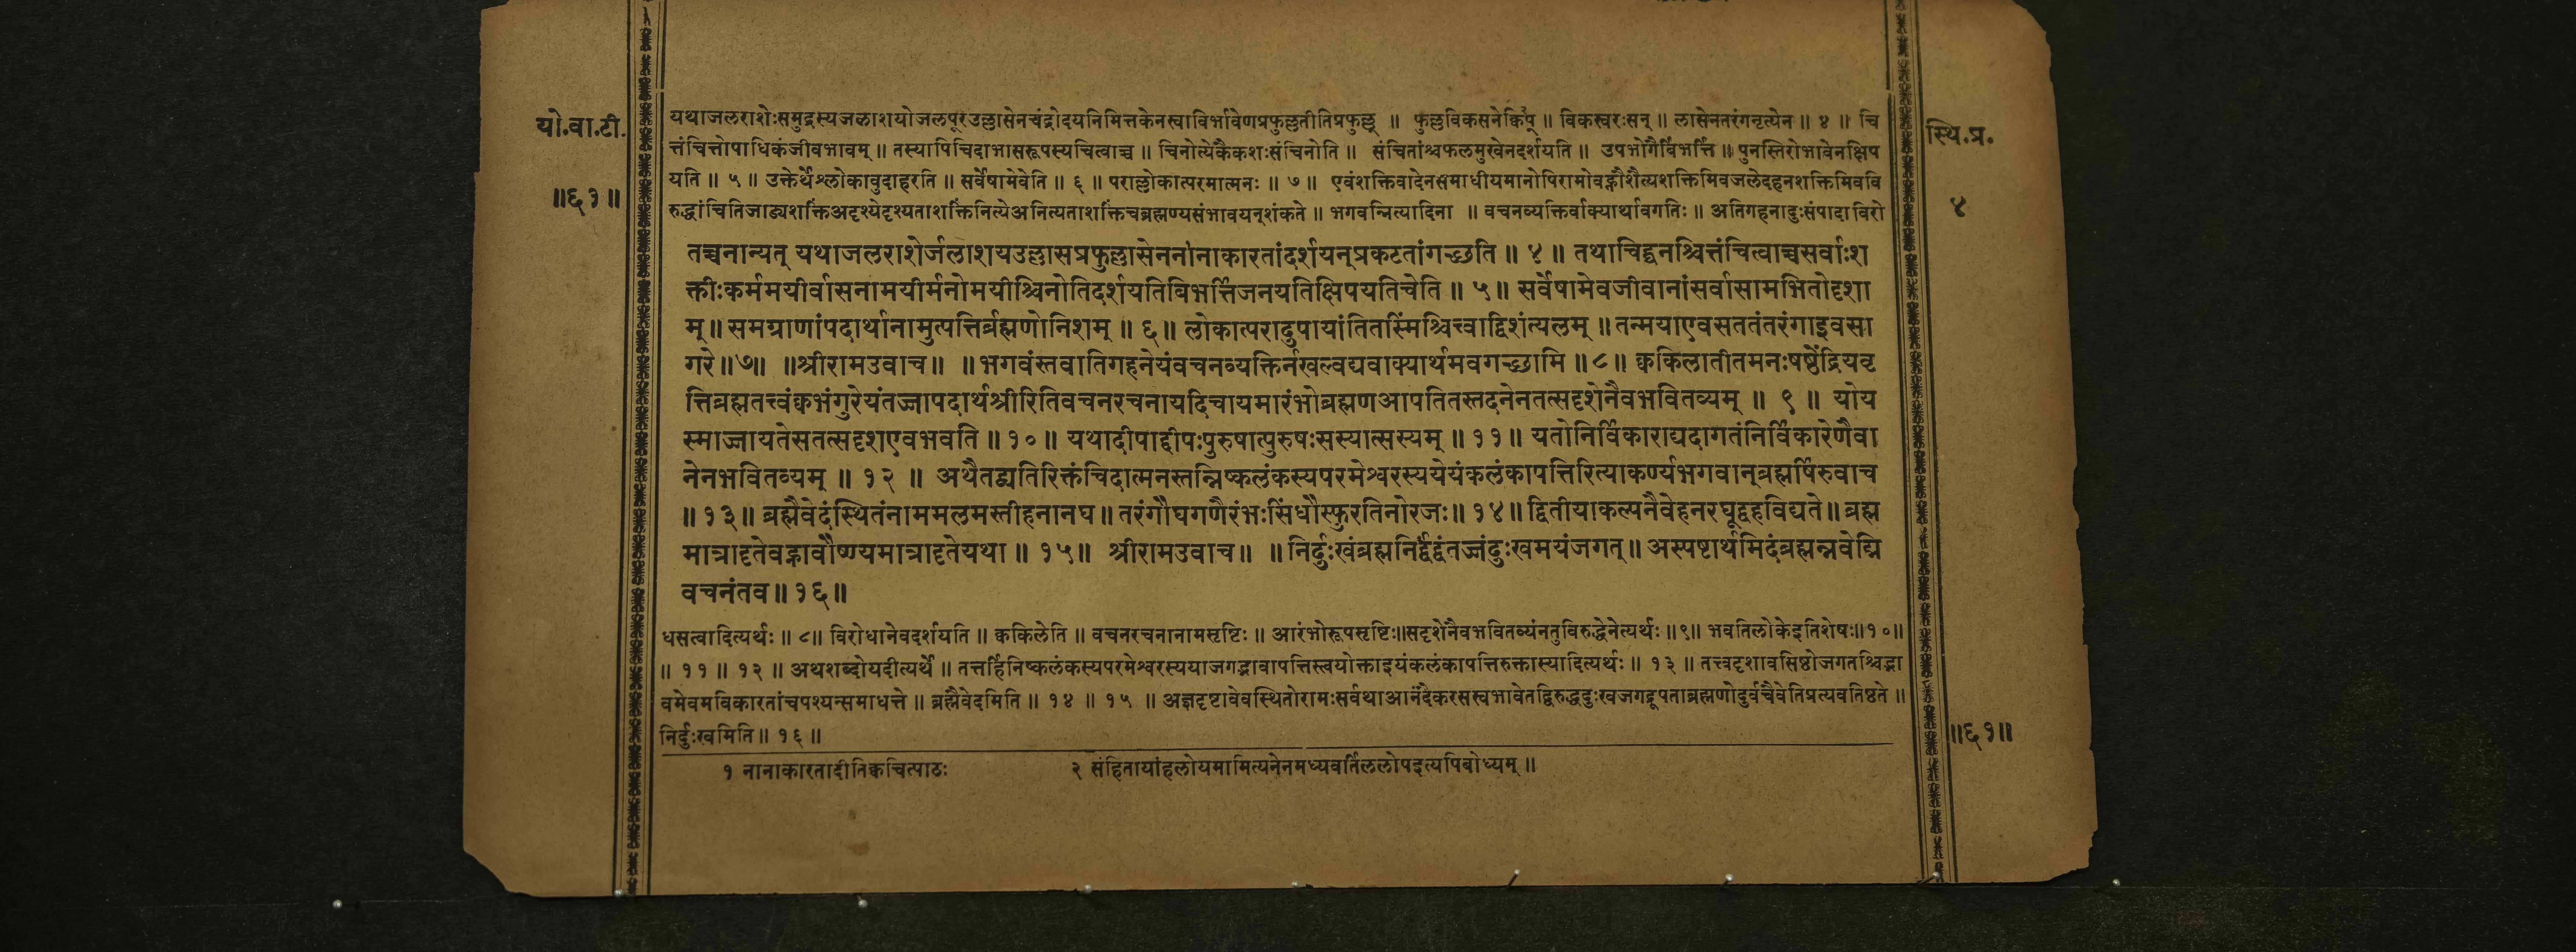 यो.वा.टी.
॥६१॥
यथाजलराशेःसमुद्रस्यजळाशयोजलपूरउल्लासेनचंद्रोदयनिमित्तकेनस्वाविर्भावेणप्रफुल्लतीतिप्रफुल्ल् ॥ फुल्लविकसनेक्विप् ॥ विकस्वरःसन् ॥ लासेनतरंगनृत्येन ॥ ४ ॥ चि
त्तंचित्तोपाधिकंजीवभावम् ॥ तस्यापिचिदाभासरूपस्यचित्वाच्च ॥ चिनोत्येकैकशःसंचिनोति ॥ संचितांश्चफलमुखेनदर्शयति ॥ उपभोगैर्बिभर्त्ति ॥ पुनस्तिरोभावेनक्षिप
यति ॥ ५ ॥ उक्तेर्थेश्लोकावुदाहरति ॥ सर्वेषामेवेति ॥ ६ ॥ पराल्लोकात्परमात्मनः ॥ ७ ॥ एवंशक्तिवादेनसमाधीयमानोपिरामोवह्नौशैत्यशक्तिमिवजलेदहनशक्तिमिववि
रुद्धांचितिजाड्यशक्तिंअदृश्येदृश्यताशक्तिंनित्येअनित्यताशक्तिंचब्रह्मण्यसंभावयन्शंकते ॥ भगवन्नित्यादिना ॥ वचनव्यक्तिर्वाक्यार्थावगतिः ॥ अतिगहनादुःसंपादाविरो
तच्चनान्यत् यथाजलराशेर्जलाशयउल्लासप्रफुल्लासेननानाकारतांदर्शयन्प्रकटतांगच्छति ॥ ४ ॥ तथाचिद्घनश्चित्तंचित्वाच्चसर्वाःश
क्तीःकर्ममयीर्वासनामयीर्मनोमयीश्चिनोतिदर्शयतिबिभर्त्तिजनयतिक्षिपयतिचेति ॥ ५ ॥ सर्वेषामेवजीवानांसर्वासामभितोदृशा
म् ॥ समग्राणांपदार्थानामुत्पत्तिर्ब्रह्मणोनिशम् ॥ ६ ॥ लोकात्परादुपायांतितस्मिंश्चित्त्वाद्विशंत्यलम् ॥ तन्मयाएवसततंतरंगाइवसा
गरे ॥७॥ ॥श्रीरामउवाच॥ ॥ भगवंस्तवातिगहनेयंवचनव्यक्तिर्नखल्वद्यवाक्यार्थमवगच्छामि ॥ ८ ॥ क्वकिलातीतमनःषष्ठेंद्रियवृ
त्तिब्रह्मतत्त्वंक्वभंगुरेयंतज्जापदार्थश्रीरितिवचनरचनायदिचायमारंभोब्रह्मणआपतितस्तदनेनतत्सदृशेनैवभवितव्यम् ॥ ९ ॥ योय
स्माज्जायतेसतत्सदृशएवभवति ॥ १० ॥ यथादीपाद्दीपःपुरुषात्पुरुषःसस्यात्सस्यम् ॥ ११ ॥ यतोनिर्विकाराद्यदागतंनिर्विकारेणैवा
नेनभवितव्यम् ॥ १२ ॥ अथैतद्व्यतिरिक्तंचिदात्मनस्तन्निष्कलंकस्यपरमेश्वरस्ययेयंकलंकापत्तिरित्याकर्ण्यभगवान्ब्रह्मर्षिरुवाच
॥ १३ ॥ ब्रह्मैवेदंस्थितंनाममलमस्तीहनानघ ॥ तरंगौघगणैरंभःसिंधौस्फुरतिनोरजः ॥ १४ ॥ द्वितीयाकल्पनैवेहनरघूद्वहविद्यते ॥ ब्रह्म
मात्रादृतेवह्नावौष्ण्यमात्रादृतेयथा ॥ १५ ॥ श्रीरामउवाच ॥ ॥ निर्दुःखंब्रह्मनिर्द्वंद्वंतज्जंदुःखमयंजगत् ॥ अस्पष्टार्थमिदंब्रह्मन्नवेद्मि
वचनंतव ॥ १६ ॥
धसत्वादित्यर्थः ॥ ८ ॥ विरोधानेवदर्शयति ॥ क्वकिलेति ॥ वचनरचनानामसृष्टिः ॥ आरंभोरूपसृष्टिः॥सदृशेनैवभवितव्यंनतुविरुद्धेनेत्यर्थः ॥९॥ भवतिलोकेइतिशेषः॥१०॥
॥ ११ ॥ १२ ॥ अथशब्दोयदीत्यर्थे ॥ तत्तर्हिनिष्कलंकस्यपरमेश्वरस्ययाजगद्भावापत्तिस्त्वयोक्ताइयंकलंकापत्तिरुक्तास्यादित्यर्थः ॥ १३ ॥ तत्त्वदृशावसिष्ठोजगतश्चिद्भा
वमेवमविकारतांचपश्यन्समाधत्ते ॥ ब्रह्मैवेदमिति ॥ १४ ॥ १५ ॥ अज्ञदृष्टावेवस्थितोरामःसर्वथाआनंदैकरसस्वभावेतद्विरुद्धदुःखजगद्रूपताब्रह्मणोदुर्वचैवेतिप्रत्यवतिष्ठते ॥
निर्दुःखमिति ॥ १६ ॥
१ नानाकारतादीतिक्वचित्पाठः २ संहितायांहलोयमामित्यनेनमध्यवर्तिललोपइत्यपिबोध्यम् ॥
स्थि.प्र.
४
॥६१॥